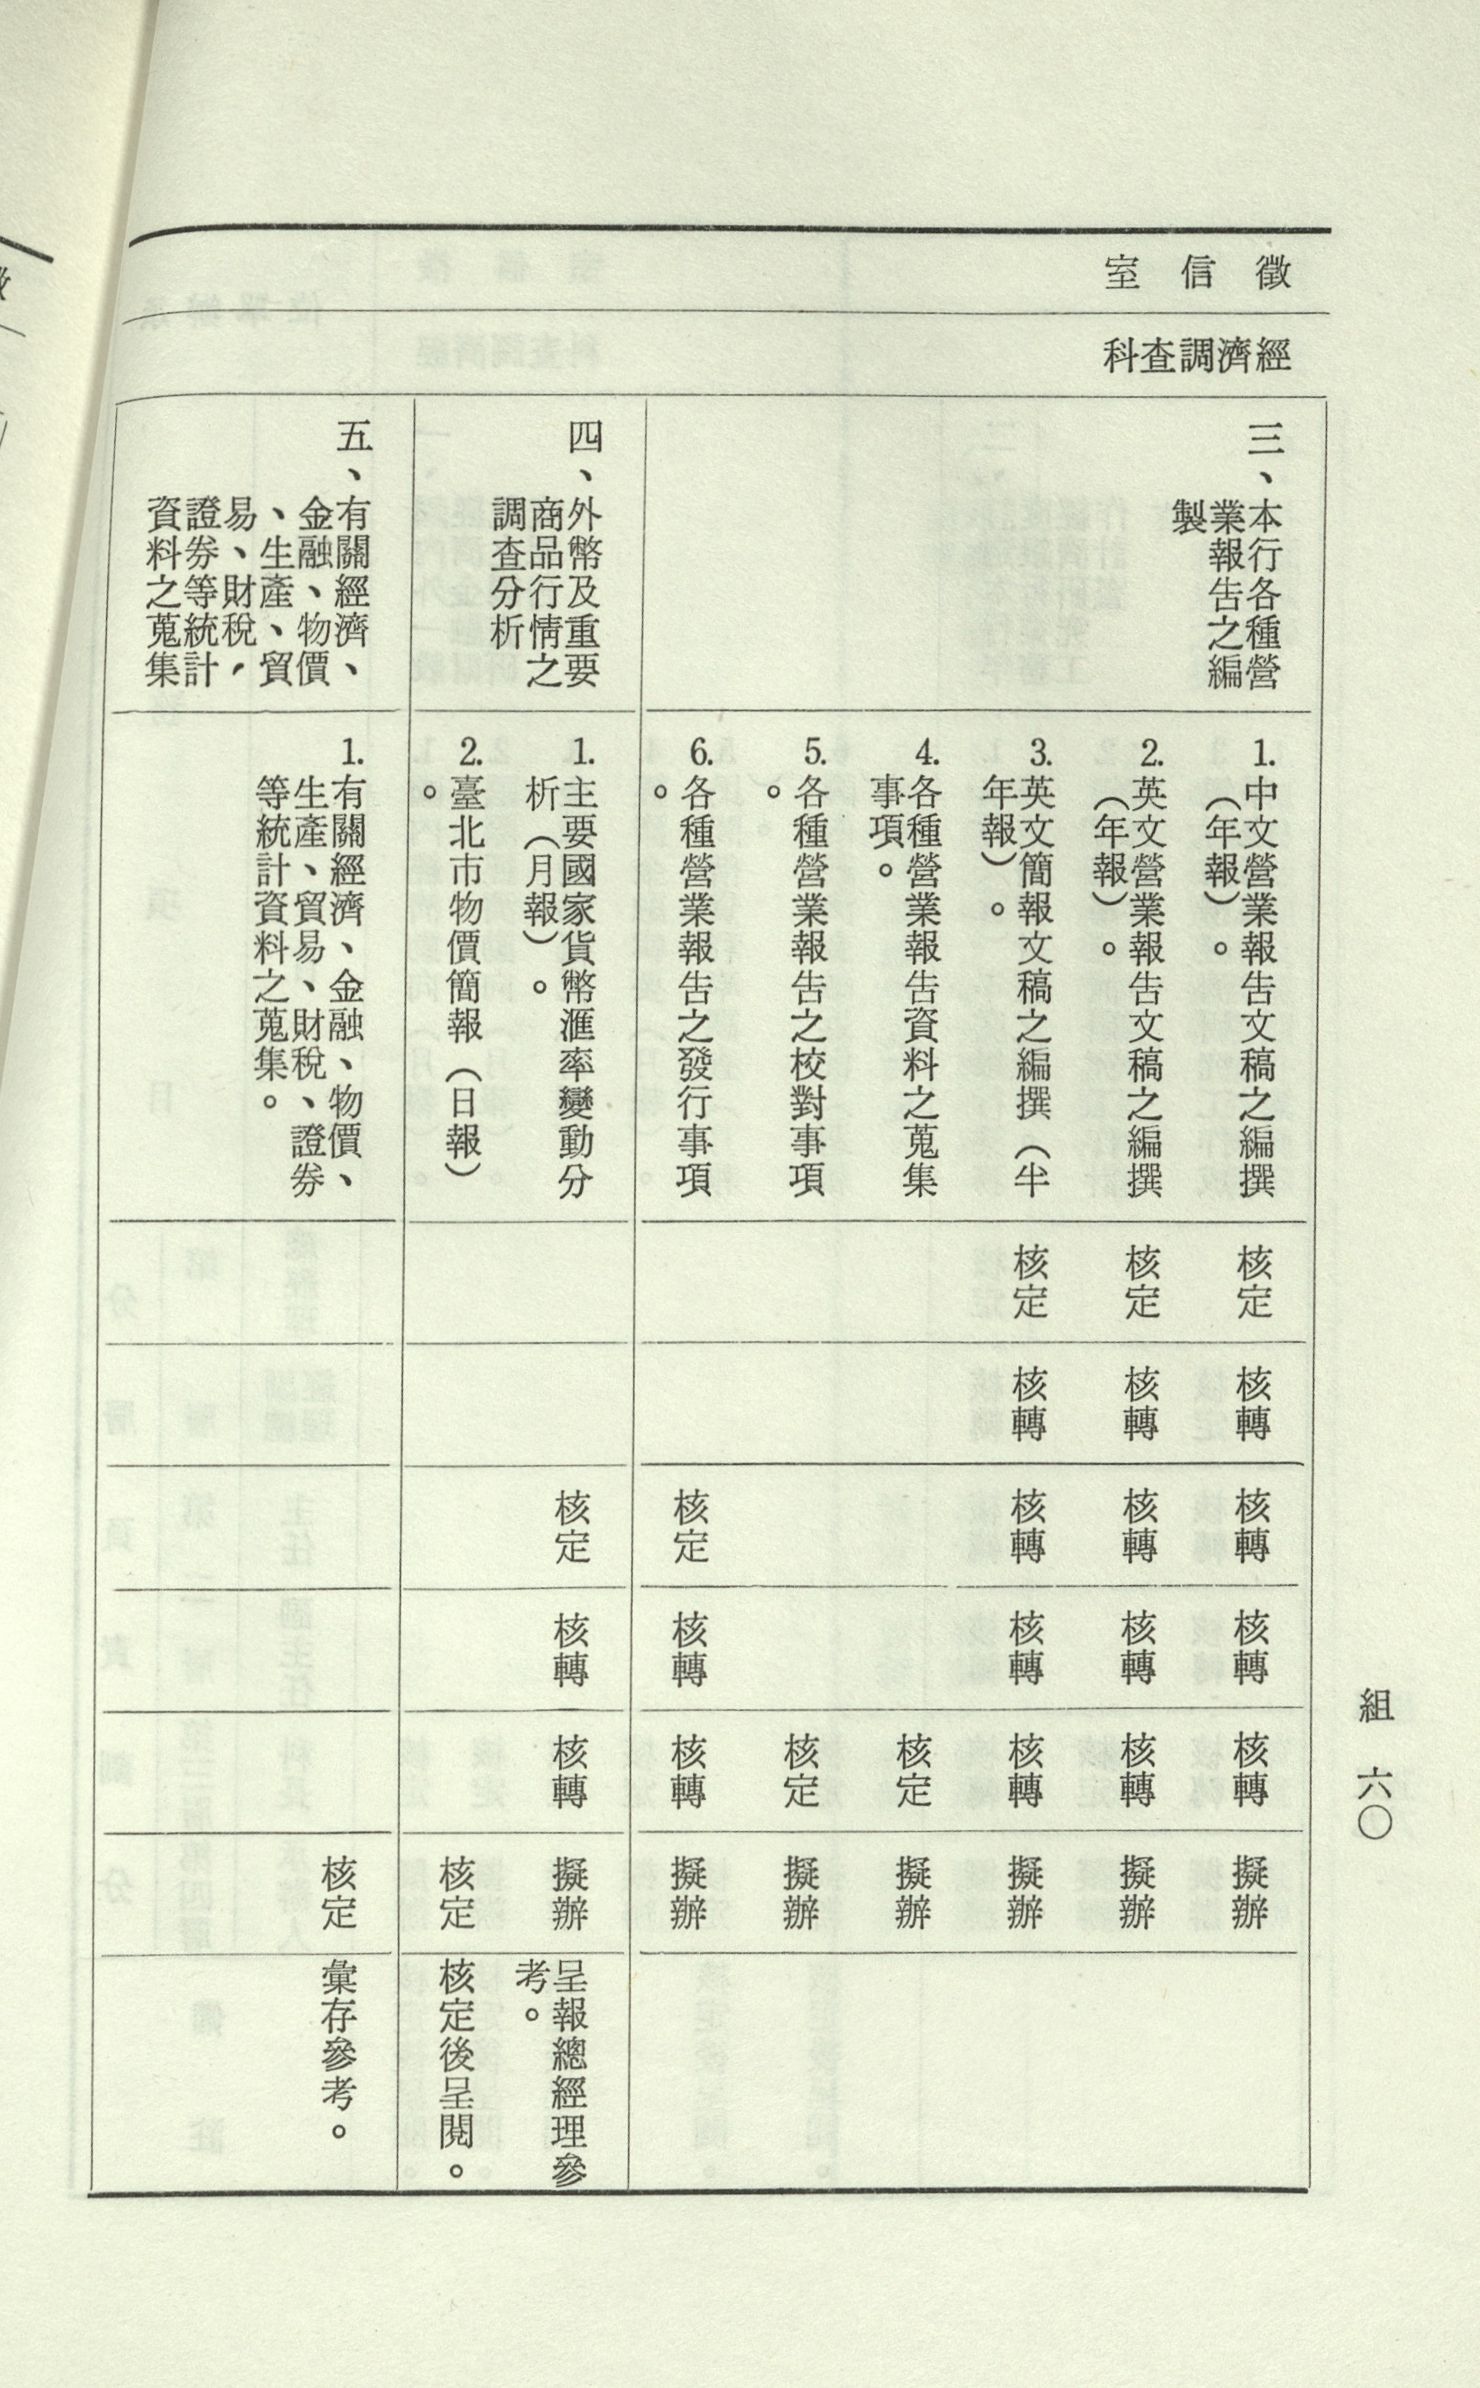 徵信室
經濟調查科
三、本行各種營
業報告之編
製
1.中文營業報告文稿之編撰
（年報）。
核定
核轉
核轉
核轉
核轉
擬辦
2.英文營業報告文稿之編撰
（年報）。
核定
核轉
核轉
核轉
核轉
擬辦
3.英文簡報文稿之編撰（半
年報）。
核定
核轉
核轉
核轉
核轉
擬辦
4.各種營業報告資料之蒐集
事項。
核定
擬辦
5.各種營業報告之校對事項
。
核定
擬辦
6.各種營業報告之發行事項
。
核定
核轉
核轉
擬辦
四、外幣及重要
商品行情之
調查分析
1.主要國家貨幣滙率變動分
析（月報）。
核定
核轉
核轉
擬辦
呈報總經理參
考。
2.臺北市物價簡報（日報）
。
核定
核定後呈閱。
五、有關經濟、
金融、物價
、生產、貿
易、財稅，
證券等統計
資料之蒐集
1.有關經濟、金融、物價、
生產、貿易、財稅、證券
等統計資料之蒐集。
核定
彙存參考。
組 六〇